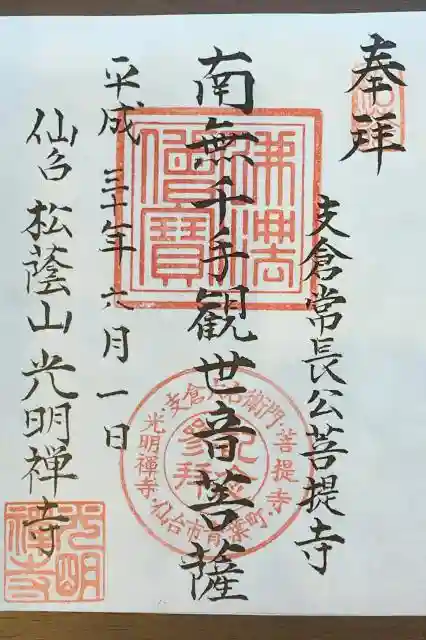 奉拝
支倉常長公菩提寺
南無千手観世音菩薩
平成三十年六月一日
仙台 松蔭山 光明禅寺
佛法僧寶
支倉六右衛門菩提寺
仙台市青葉町
光明禅寺
参拝記念
光明禅寺